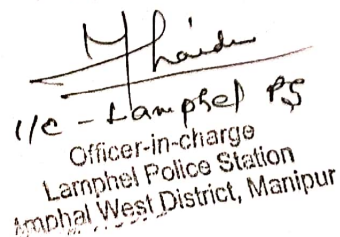 I/C - Lamphel PS
Officer-in-charge
Lamphel Police Station
Imphal West District, Manipur